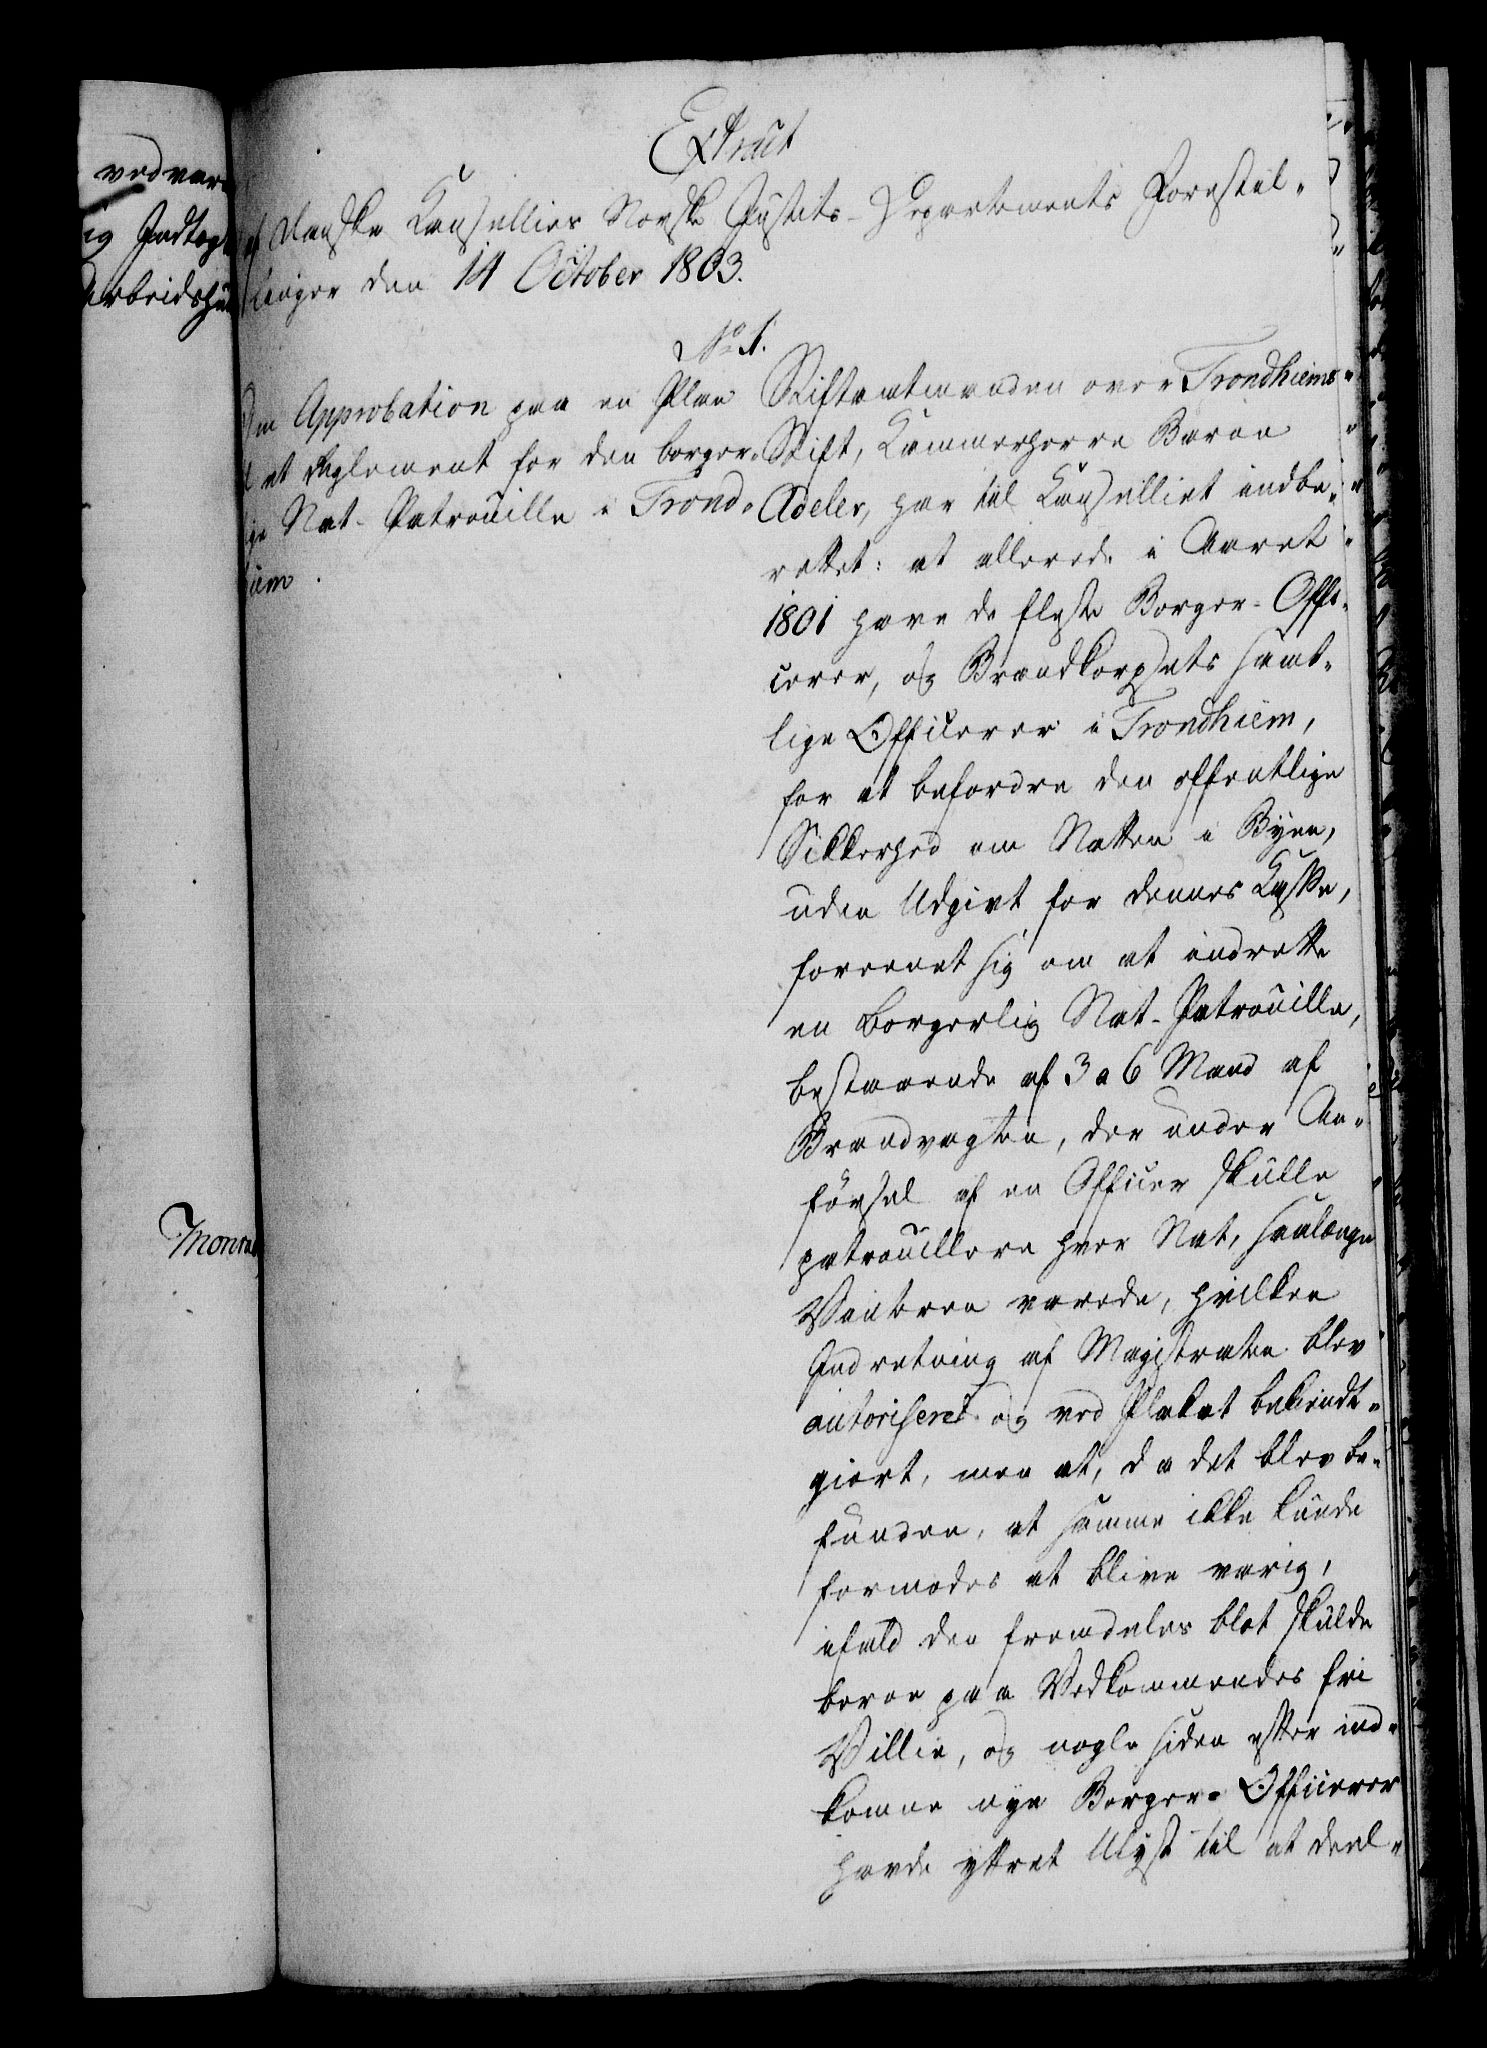 Extract
af Danske Cancellies Norske Justits-Departements Forestil-
linger den 14 October 1803.
No 1.
Om Approbation paa en Plan
til et Reglement for den borger-
lige Nat-Patrouille i Trond-
hiem.
Stiftamtmanden over Trondhiems
Stift, Kammerherre Baron
Adeler, har til Cancelliet indbe-
rettet: at allerede i Aaret
1801 have de fleste Borger-Offi-
cerer, og Brandkorpsets samt-
lige Officerer i Trondhiem,
for at befordre den offentlige
Sikkerhed om Natten i Byen,
uden Udgivt for dennes Casse,
foreenet sig om at indrette
en borgerlig Nat-Patrouille,
bestaaende af 3 a 6 Mand af
Brandvagten, der under An-
försel af en Officer skulle
patrouillere hver Nat, saalænge
Vinteren varede, hvilken
Indretning af Magistraten blev
autoriseret og ved Plakat bekiendt-
giort, men at, da det blev be-
funden, at samme ikke kunde
formodes at blive varig,
ifald den fremdeles blot skulde
beroe paa Vedkommendes frie
Villie, og nogle siden efter ind-
komne nye Borger-Officerer
havde yttret Ulyst til at deel-
vedvare
ig Indtægt
Arbeidshuu